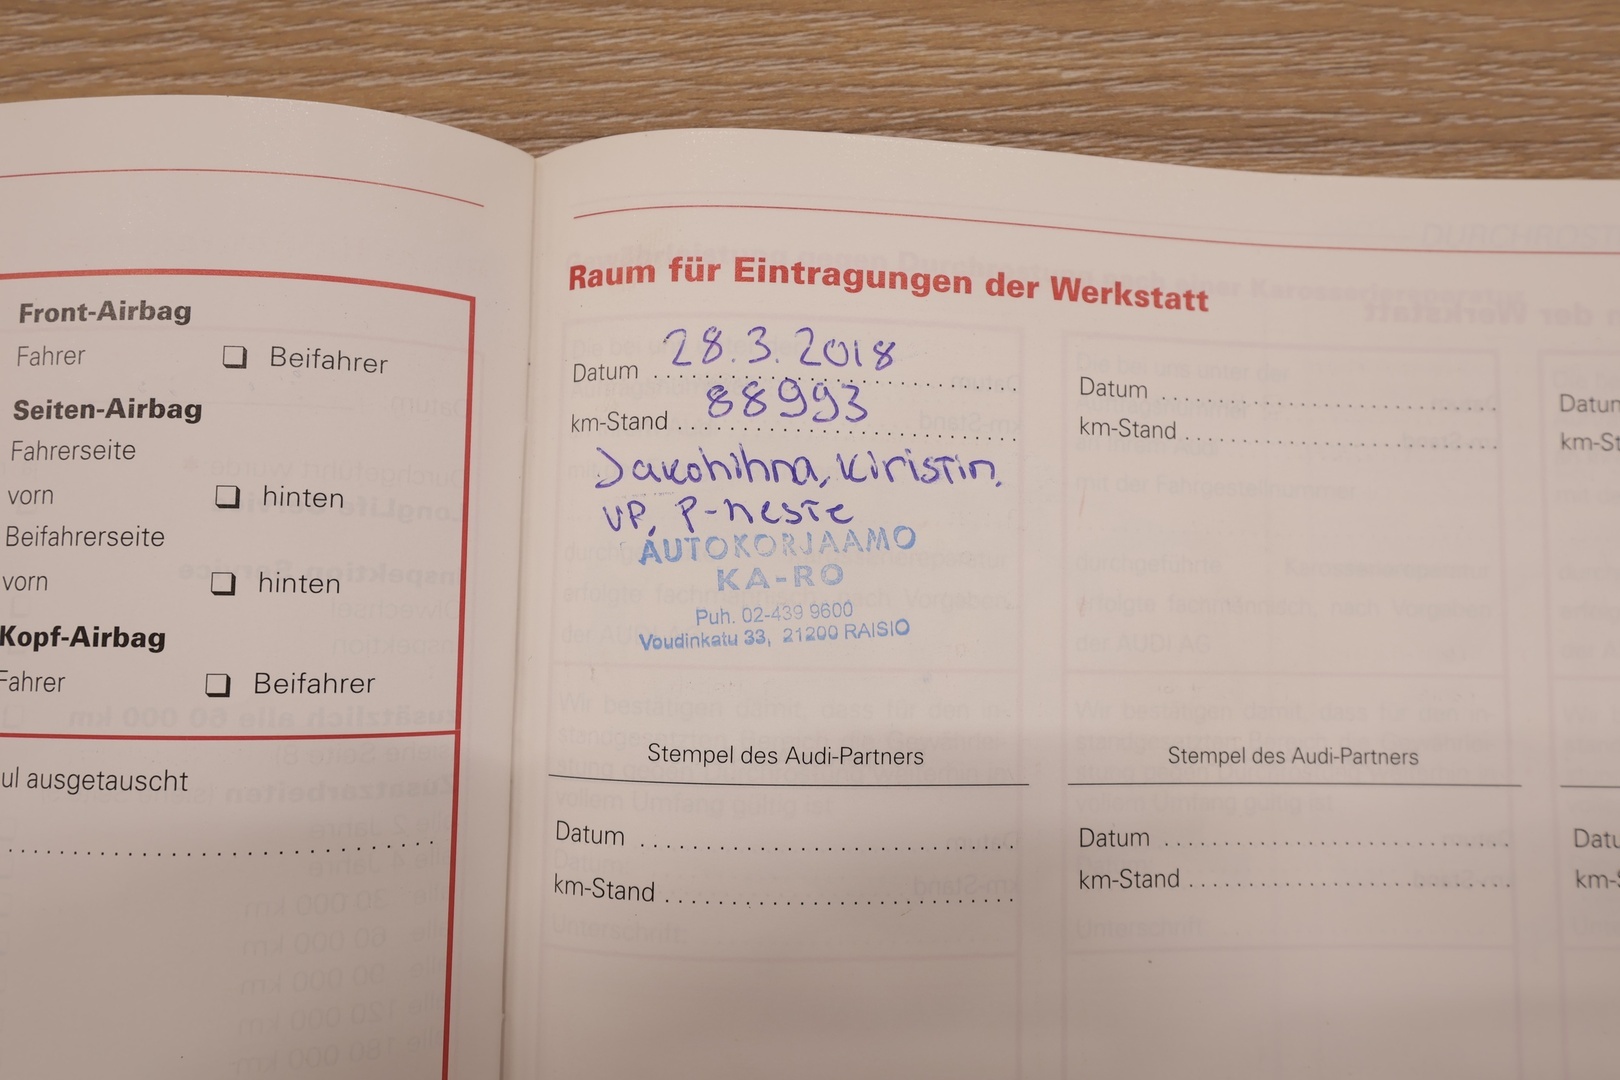 Front-Airbag
Fahrer Beifahrer
Seiten-Airbag
Fahrerseite
vorn hinten
Beifahrerseite
vorn hinten
Kopf-Airbag
Fahrer Beifahrer
ul ausgetauscht
Raum für Eintragungen der Werkstatt
Datum 28.3.2018
km-Stand 88993
Jakohihna, kiristin,
VP, P-neste
AUTOKORJAAMO
KA-RO
Puh. 02-439 9600
Voudinkatu 33, 21200 RAISIO
Stempel des Audi-Partners
Datum
km-Stand
Datum
km-Stand
Stempel des Audi-Partners
Datum
km-Stand
Datum
km-St
Datu
km-S